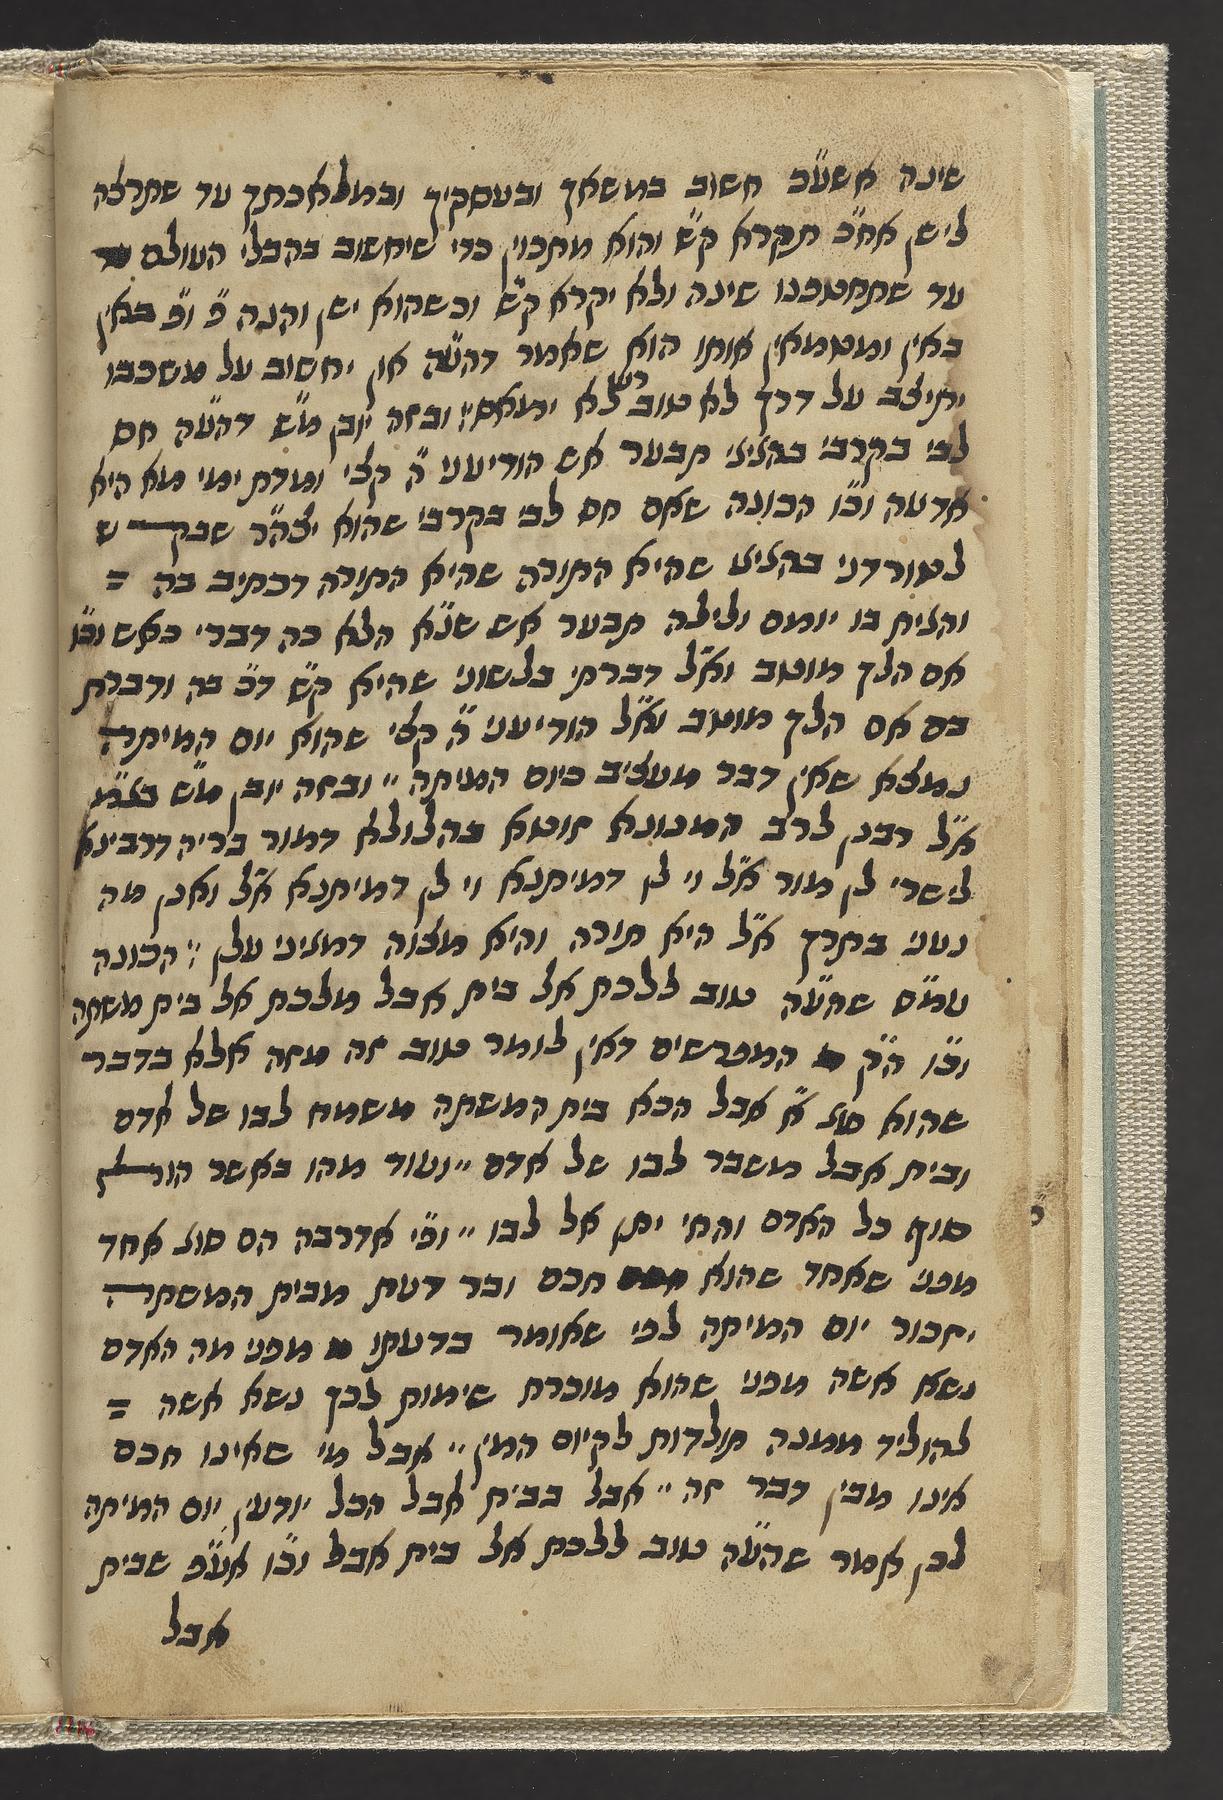 שינה אשע"כ חשוב במשאך ובעסקיך ובמלאכתך עד שתרצה
לישן אח"כ תקרא ק"ש והוא מתכוין כדי שיחשוב בהבלי העולם
עד שתחטפנו שינה ולא יקרא ק"ש וכשהוא ישן והנה כ"ו כ"ו באין
באין ומטמאין אותו הוא שאמר דהע"ה און יחשוב על משכבו
יתיצב על דרך לא טוב רע לא ימאס :, ובזה יובן מ"ש דהע"ה חם
לבי בקרבי בהגיגי תבער אש הודיעני ה' קצי ומדת ימי מה היא
אדעה וכ"ו הכונה שאם חם לבי בקרבי שהוא יצה"ר שבקש
לטורדני בהגיגי שהיא התורה שהיא התורה דכתיב בה =
והגית בו יומם ולילה תבער אש שנ"א הלא כה דברי כאש וכ"ו
אם הלך מוטב וא"ל דברתי בלשוני שהיא ק"ש דכ' בה ודברת
בם אם הלך מוטב וא"ל הודיעני ה' קצי שהוא יום המיתה
נמצא שאין דבר מעציב כיום המיתה ,, ובזה יובן מ"ש בגמ'
א"ל רבנן לרב המנונא זוטא בהלולא דמור בריה דרבינא
לישרי לן מור א"ל וי לן דמיתנא וי לן דמיתנא א"ל ואנן מה
נעני בתרך א"ל היא תורה והיא מצוה דמגיני עלן :, הכונה
עמ"ס שהע"ה טוב ללכת אל בית אבל מלכת אל בית משתה
וכ"ו הק' המפרשים דאין לומר טוב זה מזה אלא בדבר
שהוא סוג א' אבל הכא בית המשתה משמח לבו של אדם
ובית אבל משבר לבו של אדם ,, ועוד מהו באשר הוא
סוף כל האדם והחי יתן אל לבו ,, וכ"י אדרבה הם סוג אחד
מפני שאחד שהוא חכם ובר דעת מבית המשתה
יזכור יום המיתה לפי שאומר בדעתו מפני מה האדם
נשא אשה מפני שהוא מוכרח שימות לכך נשא אשה =
להוליד ממנה תולדות לקיום המין ,, אבל מי שאינו חכם
אינו מבין דבר זה ,, אבל בבית אבל הכל יודעין יום המיתה
לכן אמר שהע"ה טוב ללכת אל בית אבל וכ"ו אע"פ שבית
אבל